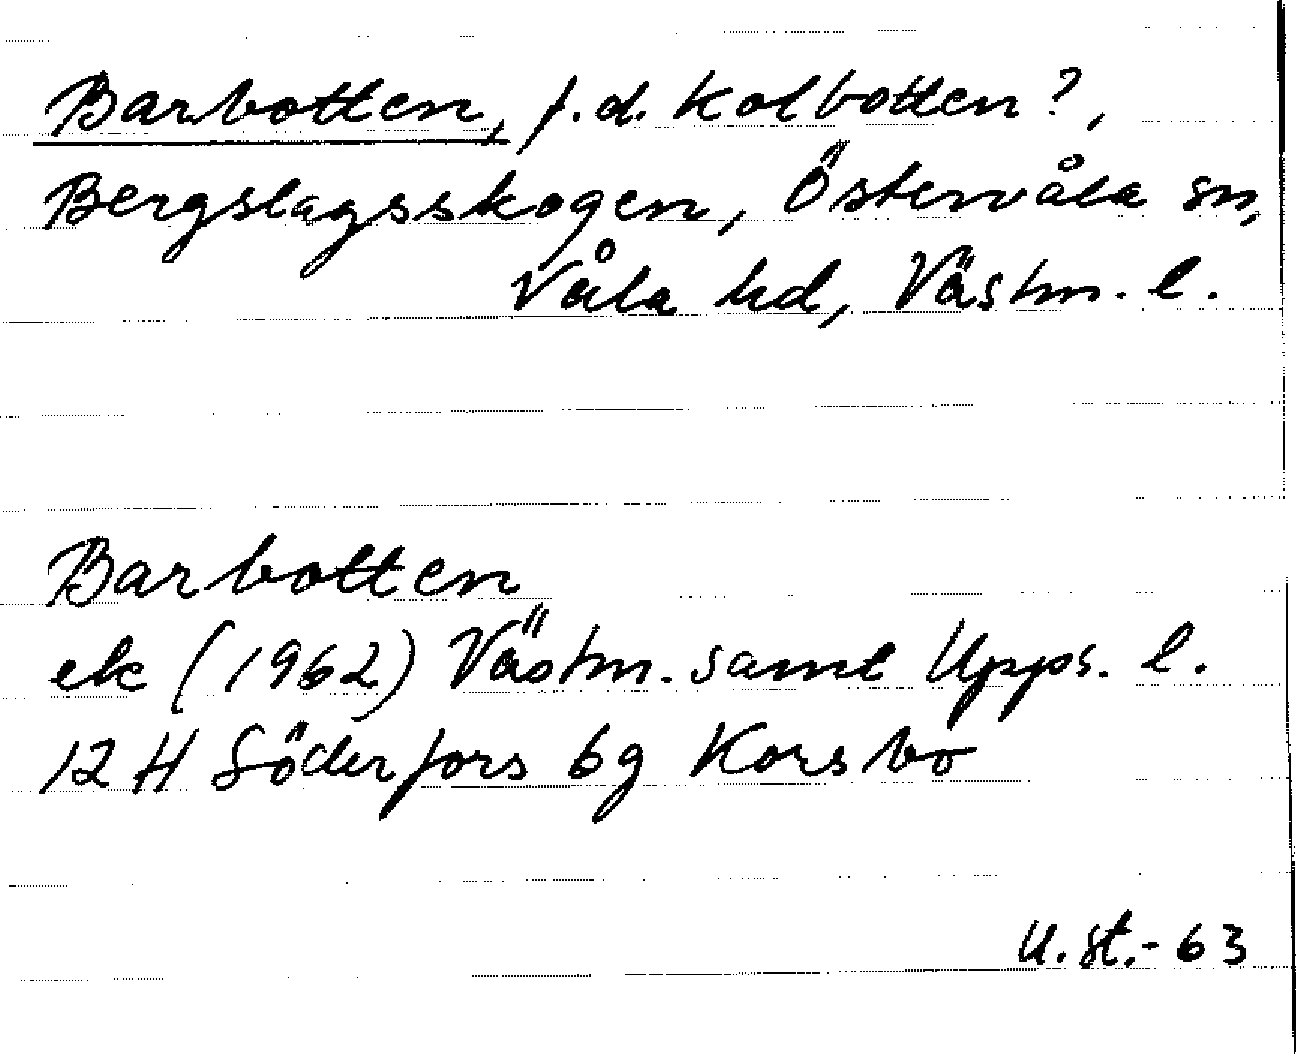 Barbotten, f.d. kolbotten?,
Bergslagsskogen, Östervåla sn,
Våla hd, Västm. l.
Barbotten
ek (1962) Västm. samt Upps. l.
12 H Söderfors 6g Korsbo
U. St.-63